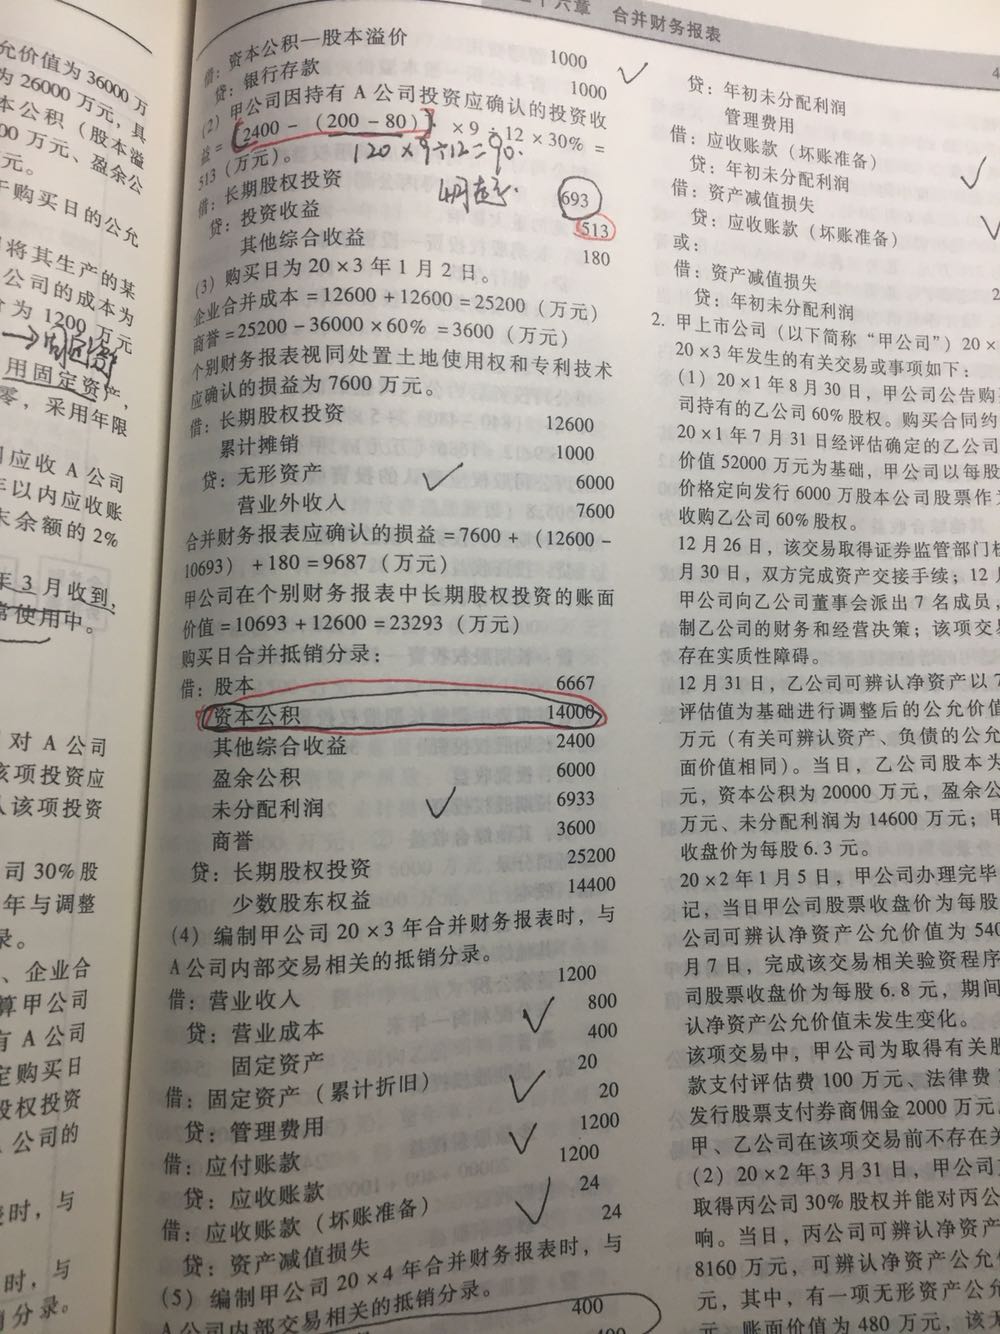 允价值为36000万
为26000万元，具
本公积（股本溢
00万元、盈余公
元。
于购买日的公允
司将其生产的某
公司的成本为
价为1200万元
用固定资产，
零，采用年限
司应收A公司
年以内应收账
末余额的2%
年3月收到，
常使用中。
对A公司
该项投资应
认该项投资
司30%股
年与调整
录。
、企业合
算甲公司
有A公司
定购买日
股权投资
A公司的
时，与
时，与
分录。
借：资本公积—股本溢价 1000
贷：银行存款 1000
（2）甲公司因持有A公司投资应确认的投资收
益=[2400-（200-80）]×9÷12×30%=
120×9÷12=90.
513（万元）。
借：长期股权投资 693
贷：投资收益 513
其他综合收益 180
（3）购买日为20×3年1月2日。
企业合并成本=12600+12600=25200（万元）
商誉=25200-36000×60%=3600（万元）
个别财务报表视同处置土地使用权和专利技术
应确认的损益为7600万元。
借：长期股权投资 12600
累计摊销 1000
贷：无形资产 6000
营业外收入 7600
合并财务报表应确认的损益=7600+（12600-
10693）+180=9687（万元）
甲公司在个别财务报表中长期股权投资的账面
价值=10693+12600=23293（万元）
购买日合并抵销分录：
借：股本 6667
资本公积 14000
其他综合收益 2400
盈余公积 6000
未分配利润 6933
商誉 3600
贷：长期股权投资 25200
少数股东权益 14400
（4）编制甲公司20×3年合并财务报表时，与
A公司内部交易相关的抵销分录。
借：营业收入 1200
贷：营业成本 800
固定资产 400
借：固定资产（累计折旧） 20
贷：管理费用 20
借：应付账款 1200
贷：应收账款 1200
借：应收账款（坏账准备） 24
贷：资产减值损失 24
（5）编制甲公司20×4年合并财务报表时，与
A公司内部交易相关的抵销分录。
400
十六章 合并财务报表
贷：年初未分配利润
管理费用
借：应收账款（坏账准备）
贷：年初未分配利润
借：资产减值损失
贷：应收账款（坏账准备）
或：
借：资产减值损失
贷：年初未分配利润
2. 甲上市公司（以下简称“甲公司”）20×
20×3年发生的有关交易或事项如下：
（1）20×1年8月30日，甲公司公告购
司持有的乙公司60%股权。购买合同约
20×1年7月31日经评估确定的乙公司
价值52000万元为基础，甲公司以每股
价格定向发行6000万股本公司股票作
收购乙公司60%股权。
12月26日，该交易取得证券监管部门
月30日，双方完成资产交接手续；12月
甲公司向乙公司董事会派出7名成员，
制乙公司的财务和经营决策；该项交易
存在实质性障碍。
12月31日，乙公司可辨认净资产以7
评估值为基础进行调整后的公允价值
万元（有关可辨认资产、负债的公允
面价值相同）。当日，乙公司股本为
元，资本公积为20000万元，盈余公
万元、未分配利润为14600万元；甲
收盘价为每股6.3元。
20×2年1月5日，甲公司办理完毕
记，当日甲公司股票收盘价为每股
公司可辨认净资产公允价值为540
月7日，完成该交易相关验资程序
司股票收盘价为每股6.8元，期间
认净资产公允价值未发生变化。
该项交易中，甲公司为取得有关股
款支付评估费100万元、法律费
发行股票支付券商佣金2000万元
甲、乙公司在该项交易前不存在关
（2）20×2年3月31日，甲公司
取得丙公司30%股权并能对丙公
响。当日，丙公司可辨认净资产
8160万元，可辨认净资产公允
元，其中，有一项无形资产公允
元，账面价值为480万元，该无